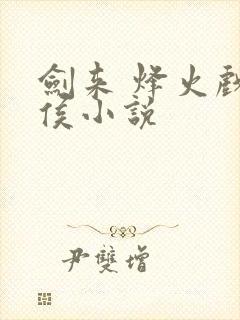 劍来 烽火戲
侯小說
尹雙增